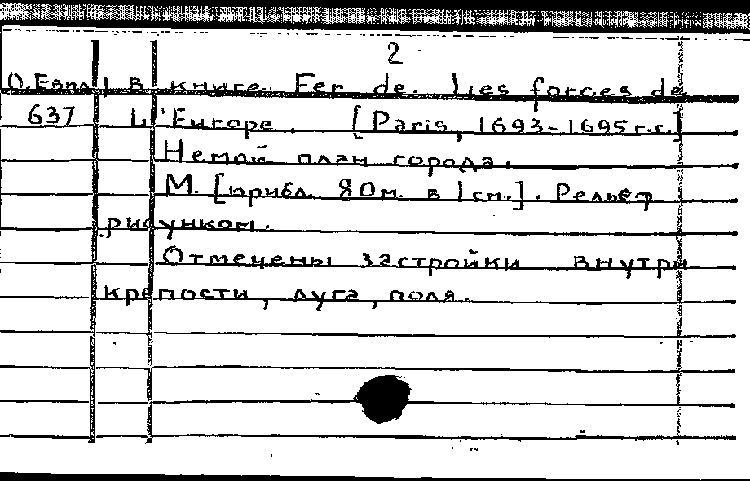 2
О.Европ. В книге. Fer de. Les forces de
637 L'Europe. [Paris, 1693-1695г.г.]
Немой план города.
М. [прибл. 80м. в 1см.]. Рельеф
рисунком.
Отмечены застройки внутри
крепости, луга, поля.